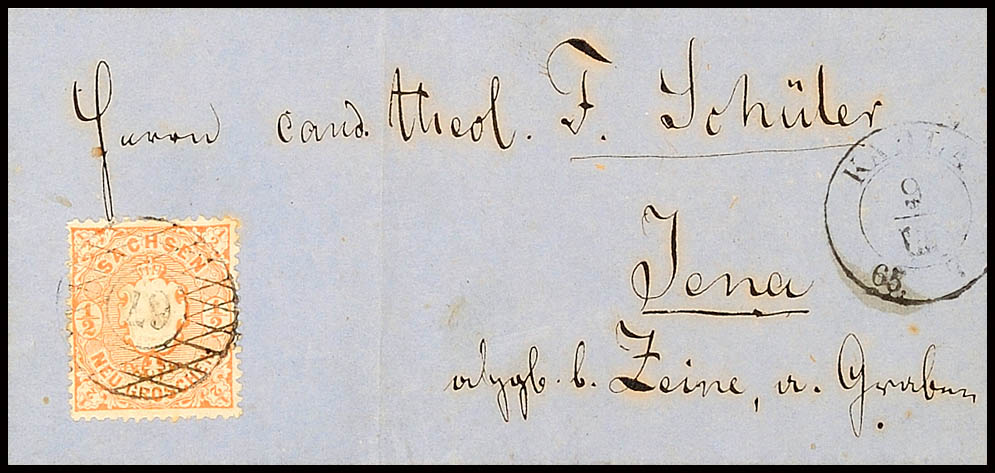 Herrn cand. theol. F. Schüler
KAHLA
65.
Jena
abzgb. b. Zeine, a. Graben.
SACHSEN
½ ½
NEU-GROSCHEN